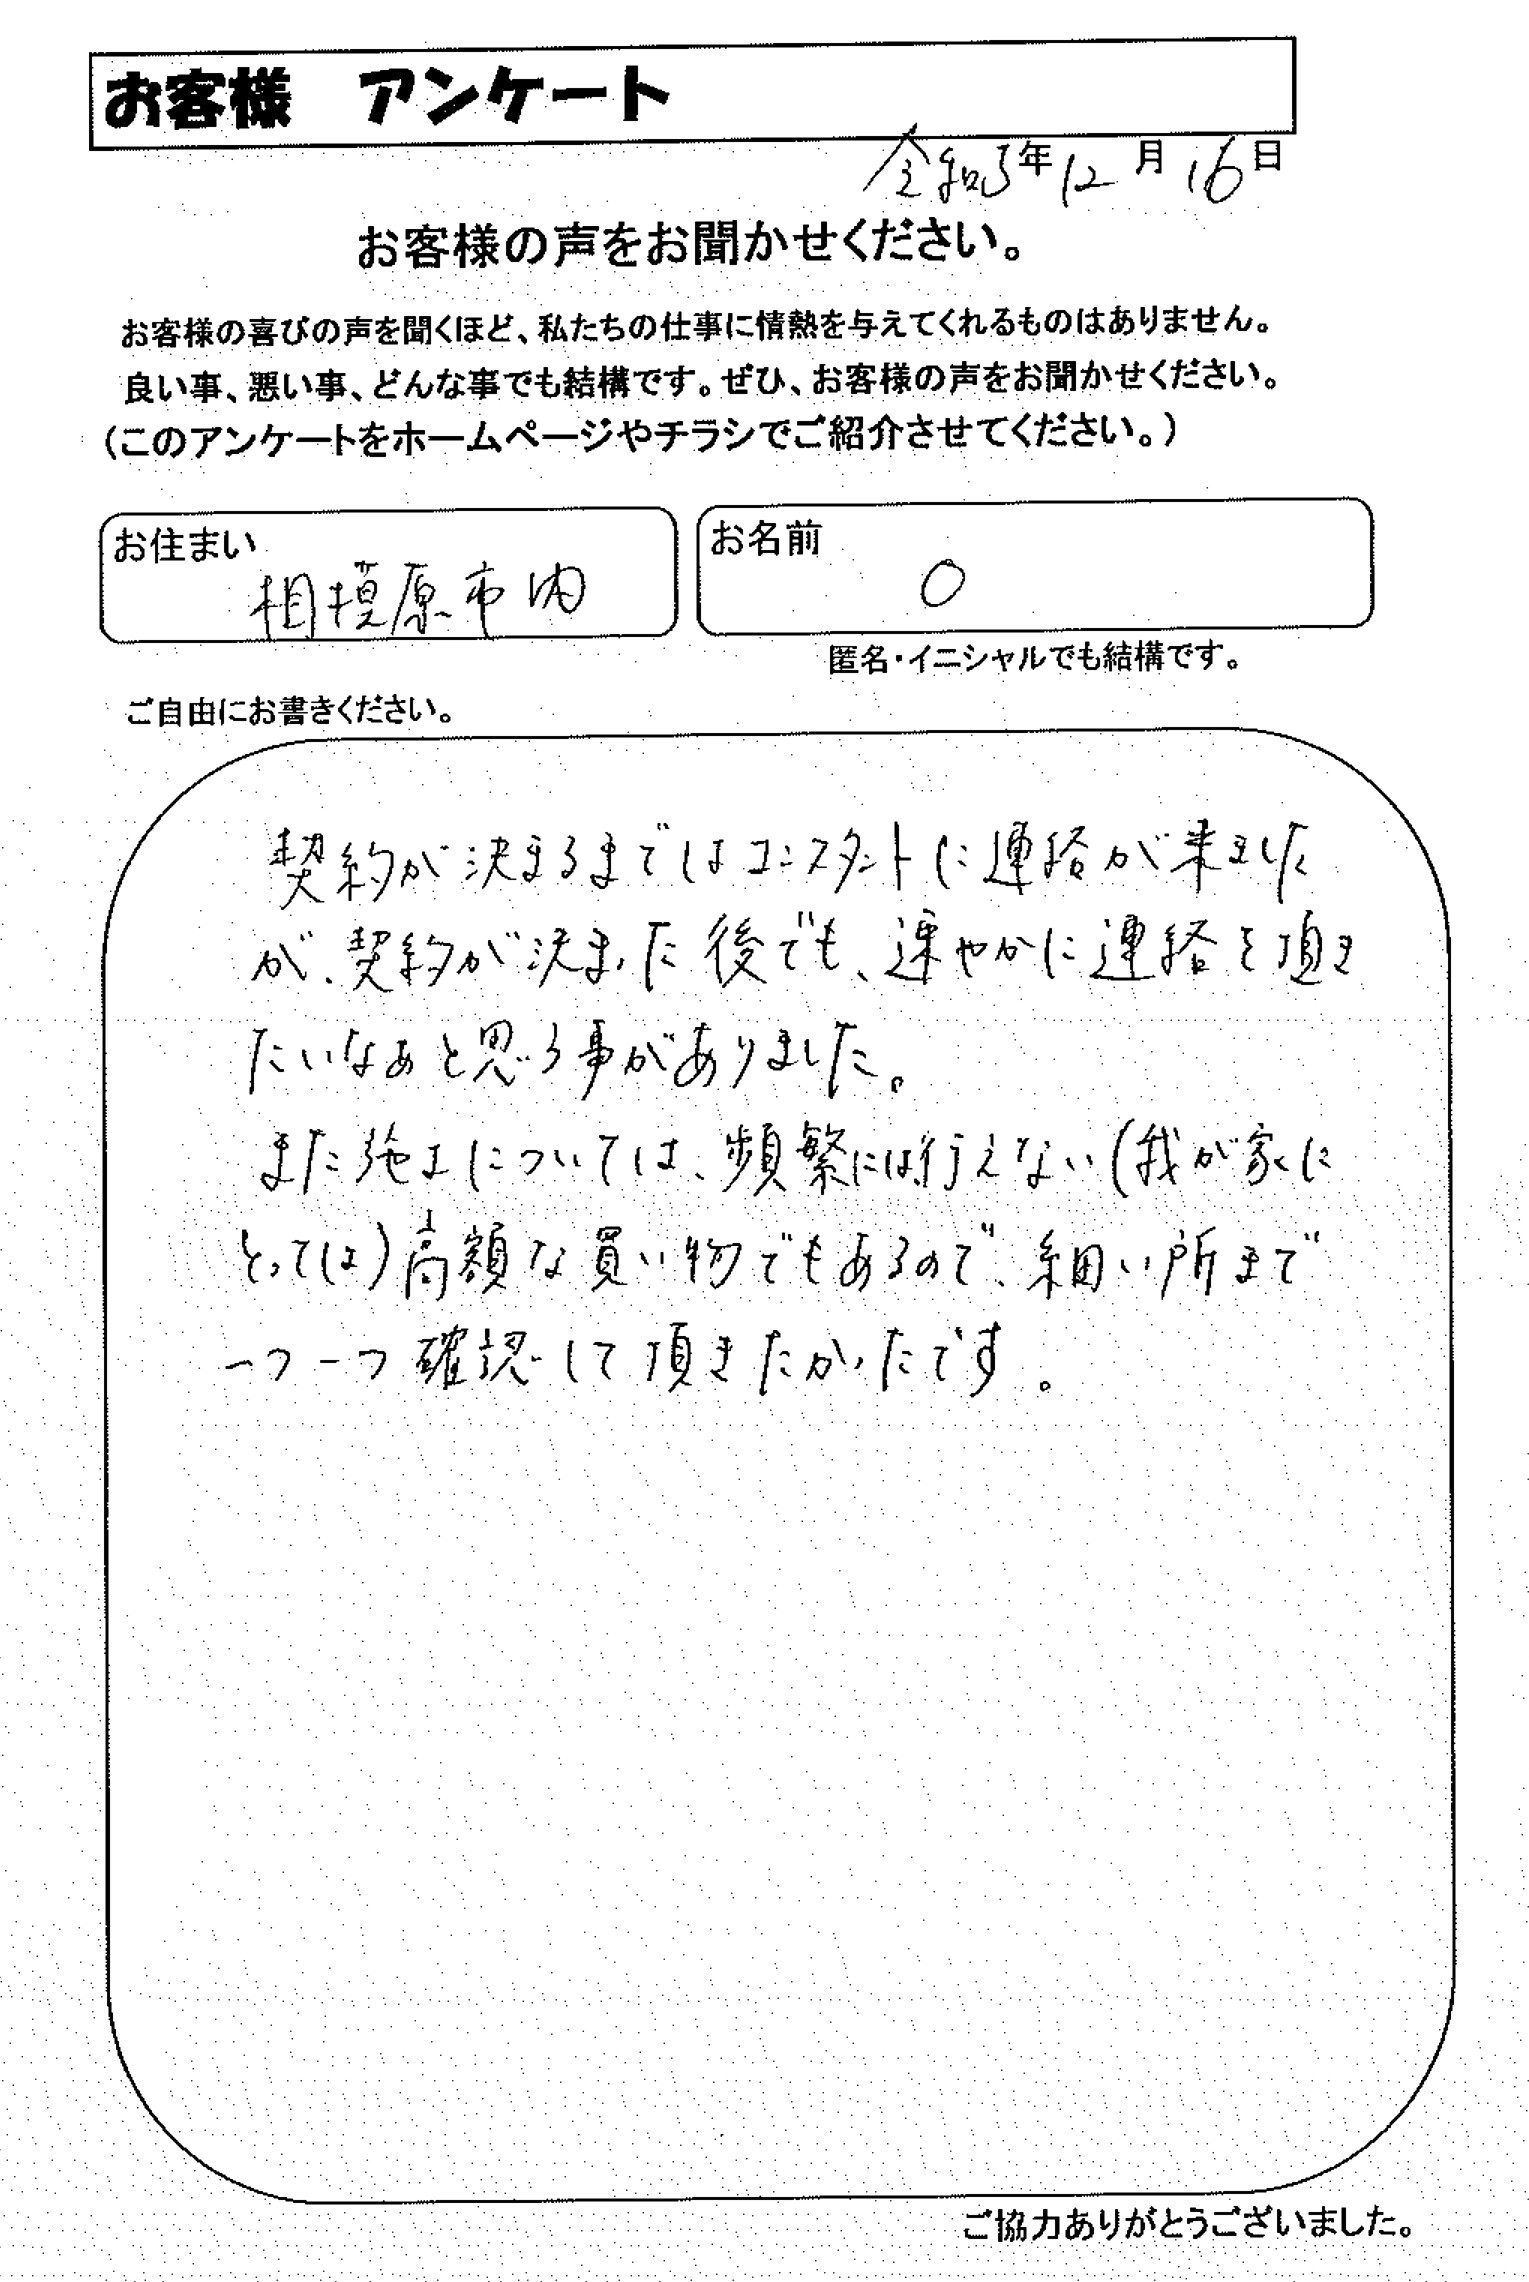 お客様　アンケート
令和3年12月16日
お客様の声をお聞かせください。
お客様の喜びの声を聞くほど、私たちの仕事に情熱を与えてくれるものはありません。
良い事、悪い事、どんな事でも結構です。ぜひ、お客様の声をお聞かせください。
（このアンケートをホームページやチラシでご紹介させてください。）
お住まい
相模原市内
お名前
O
匿名・イニシャルでも結構です。
ご自由にお書きください。
契約が決まるまではコンスタントに連絡が来ました
が、契約が決まった後でも、速やかに連絡を頂き
たいなぁと思う事がありました。
また施工については、頻繁には行えない(我が家に
とっては)高額な買い物でもあるので、細い所まで
一つ一つ確認して頂きたかったです。
ご協力ありがとうございました。